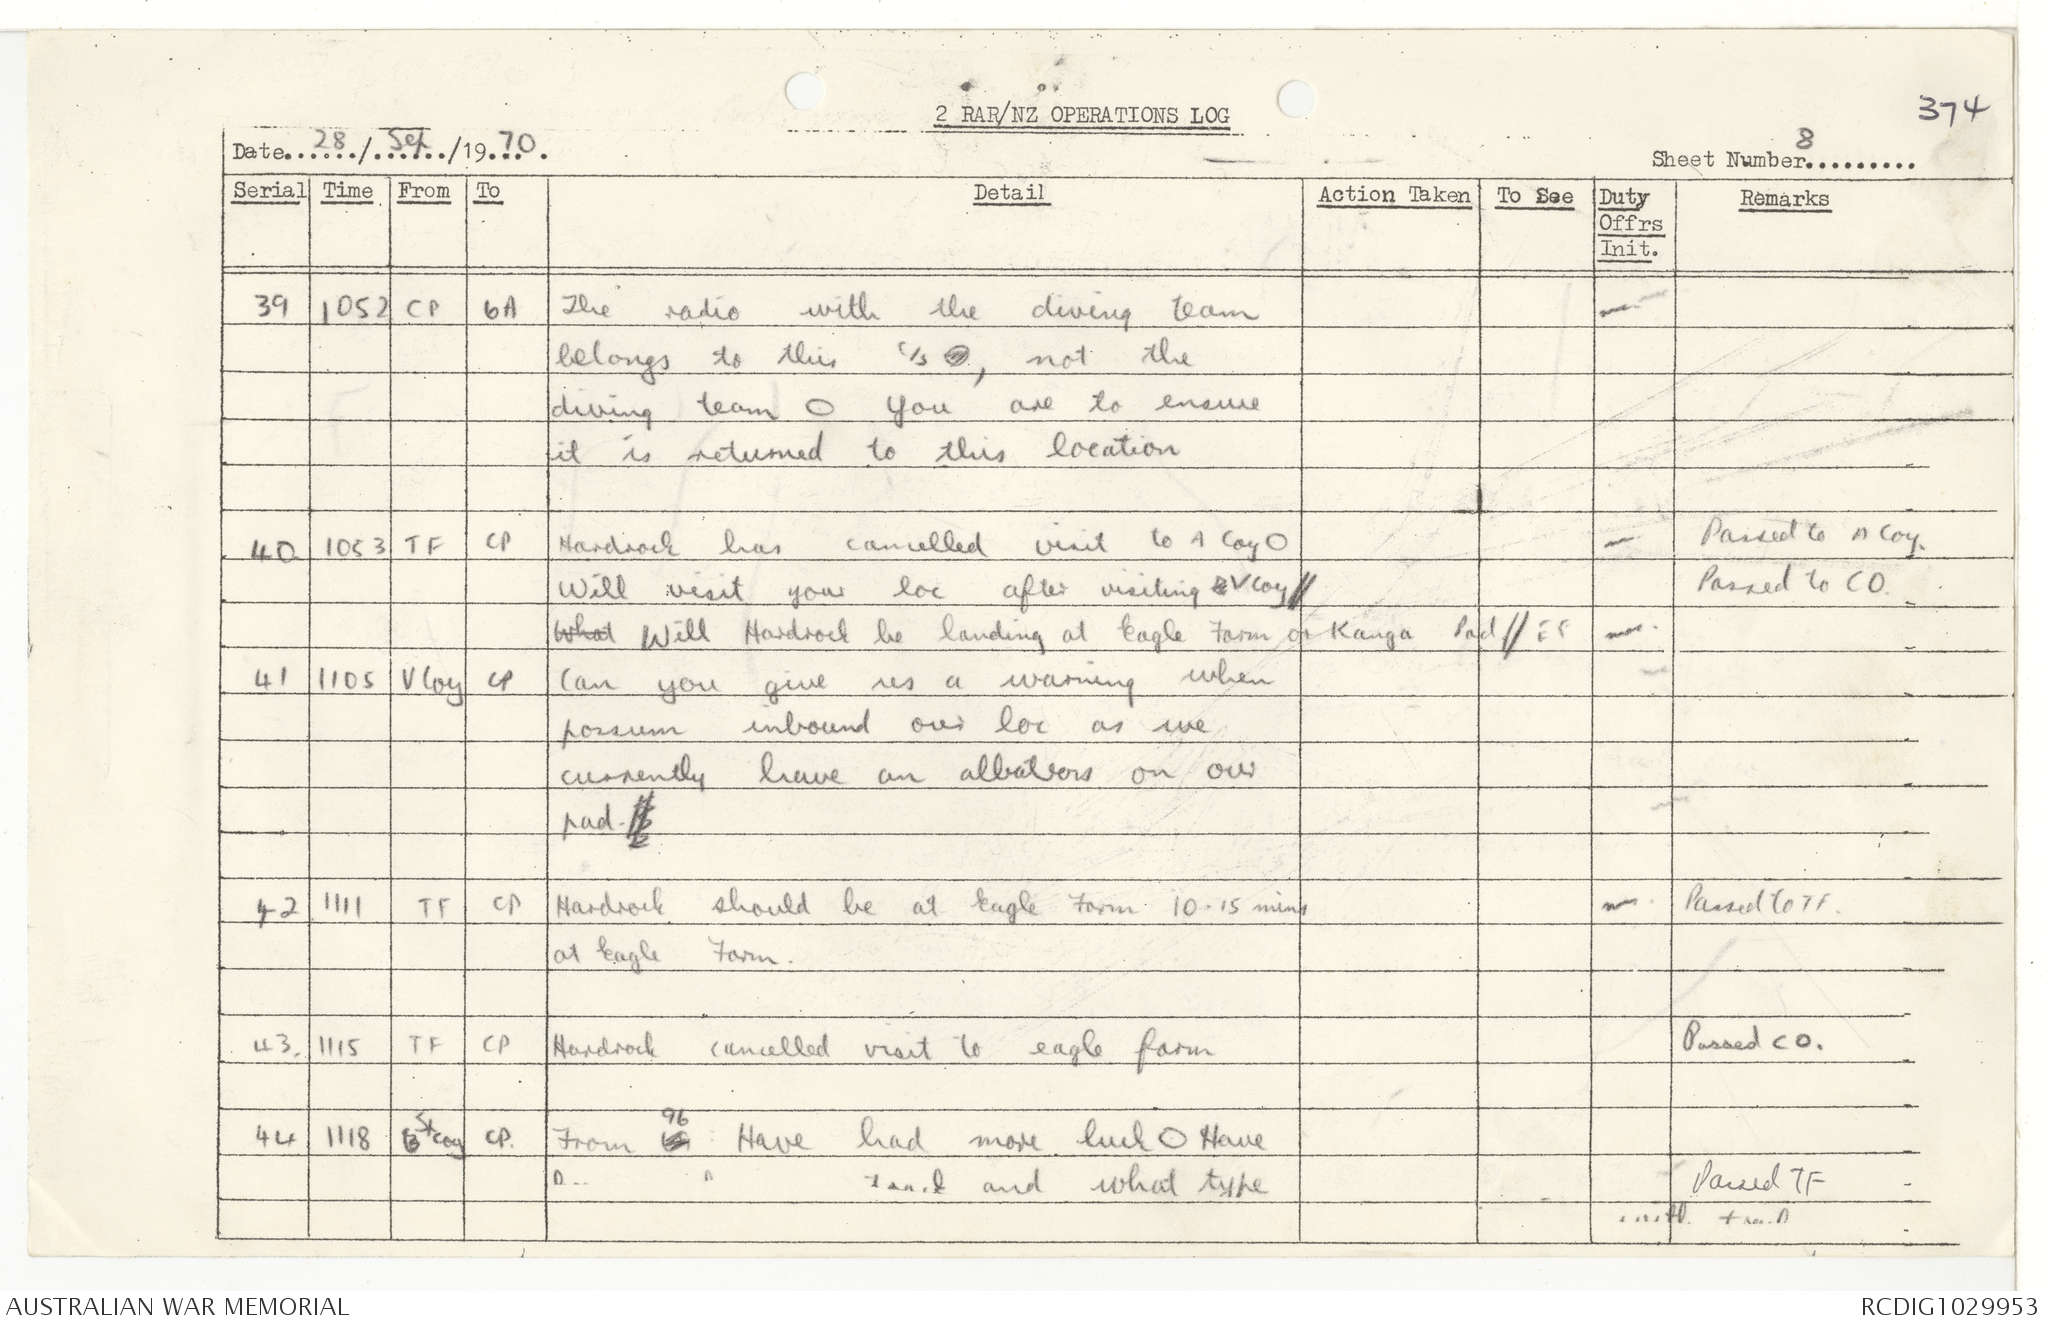 374
2 RAR/NZ OPERATIONS LOG
Date 28/Sep/1970.
Sheet Number 8
Serial Time From To Detail Action Taken To See Duty Offrs Init. Remarks
39 1052 CP 6A The radio with the diving team
belongs to this c/s, not the
diving team O You are to ensure
it is returned to this location
40 1053 TF CP Hardrock has cancelled visit to A Coy O Passed to A Coy.
Will visit your loc after visiting V Coy // Passed to CO.
What Will Hardrock be landing at Eagle Farm or Kanga Pad // EF
41 1105 V Coy CP Can you give us a warning when
possum inbound our loc as we
currently have an albatross on our
pad.
42 1111 TF CP Hardrock should be at Eagle Farm 10-15 mins Passed to TF.
at Eagle Farm.
43. 1115 TF CP Hardrock cancelled visit to eagle farm Passed CO.
44 1118 Coy CP. From 96 Have had more luck O Have
and what type Passed TF
AUSTRALIAN WAR MEMORIAL
RCDIG1029953